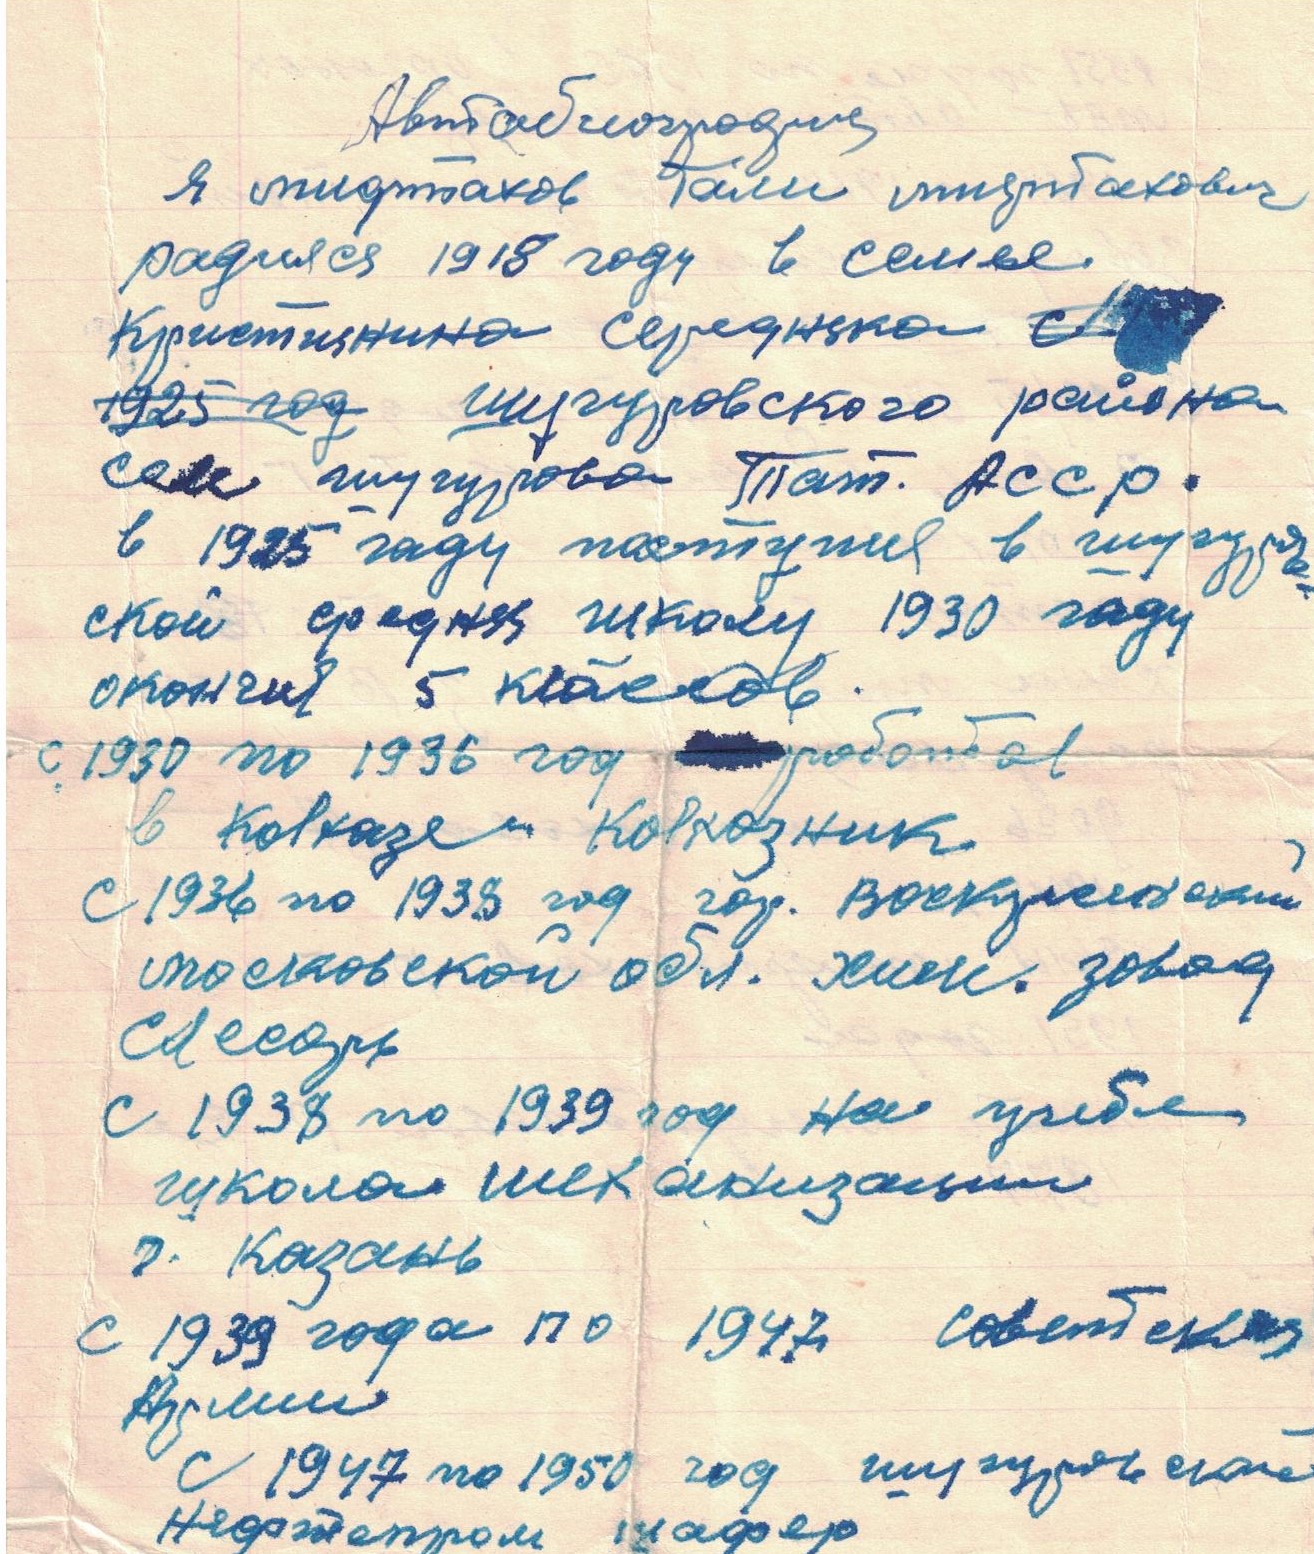 Автабиография
Я мифтахов Гали мифтахович
радился 1918 году в семье
Кристиянина середняка с
1925 год шугуровского района
сели шугурова Тат. АССР.
в 1925 гаду поступил в шугуров
ской средняя школу 1930 гаду
окончил 5 классов.
с 1930 по 1936 год работал
в Колхазе Колхозник
С 1936 по 1938 год гор. Воскресенский
московской обл. хим. завод
Слесарь
С 1938 по 1939 год на учебе
школа механизации
г. Казань
С 1939 года по 1947 Советская
Армии
С 1947 по 1950 год шугуровской
Нефтепром шафер